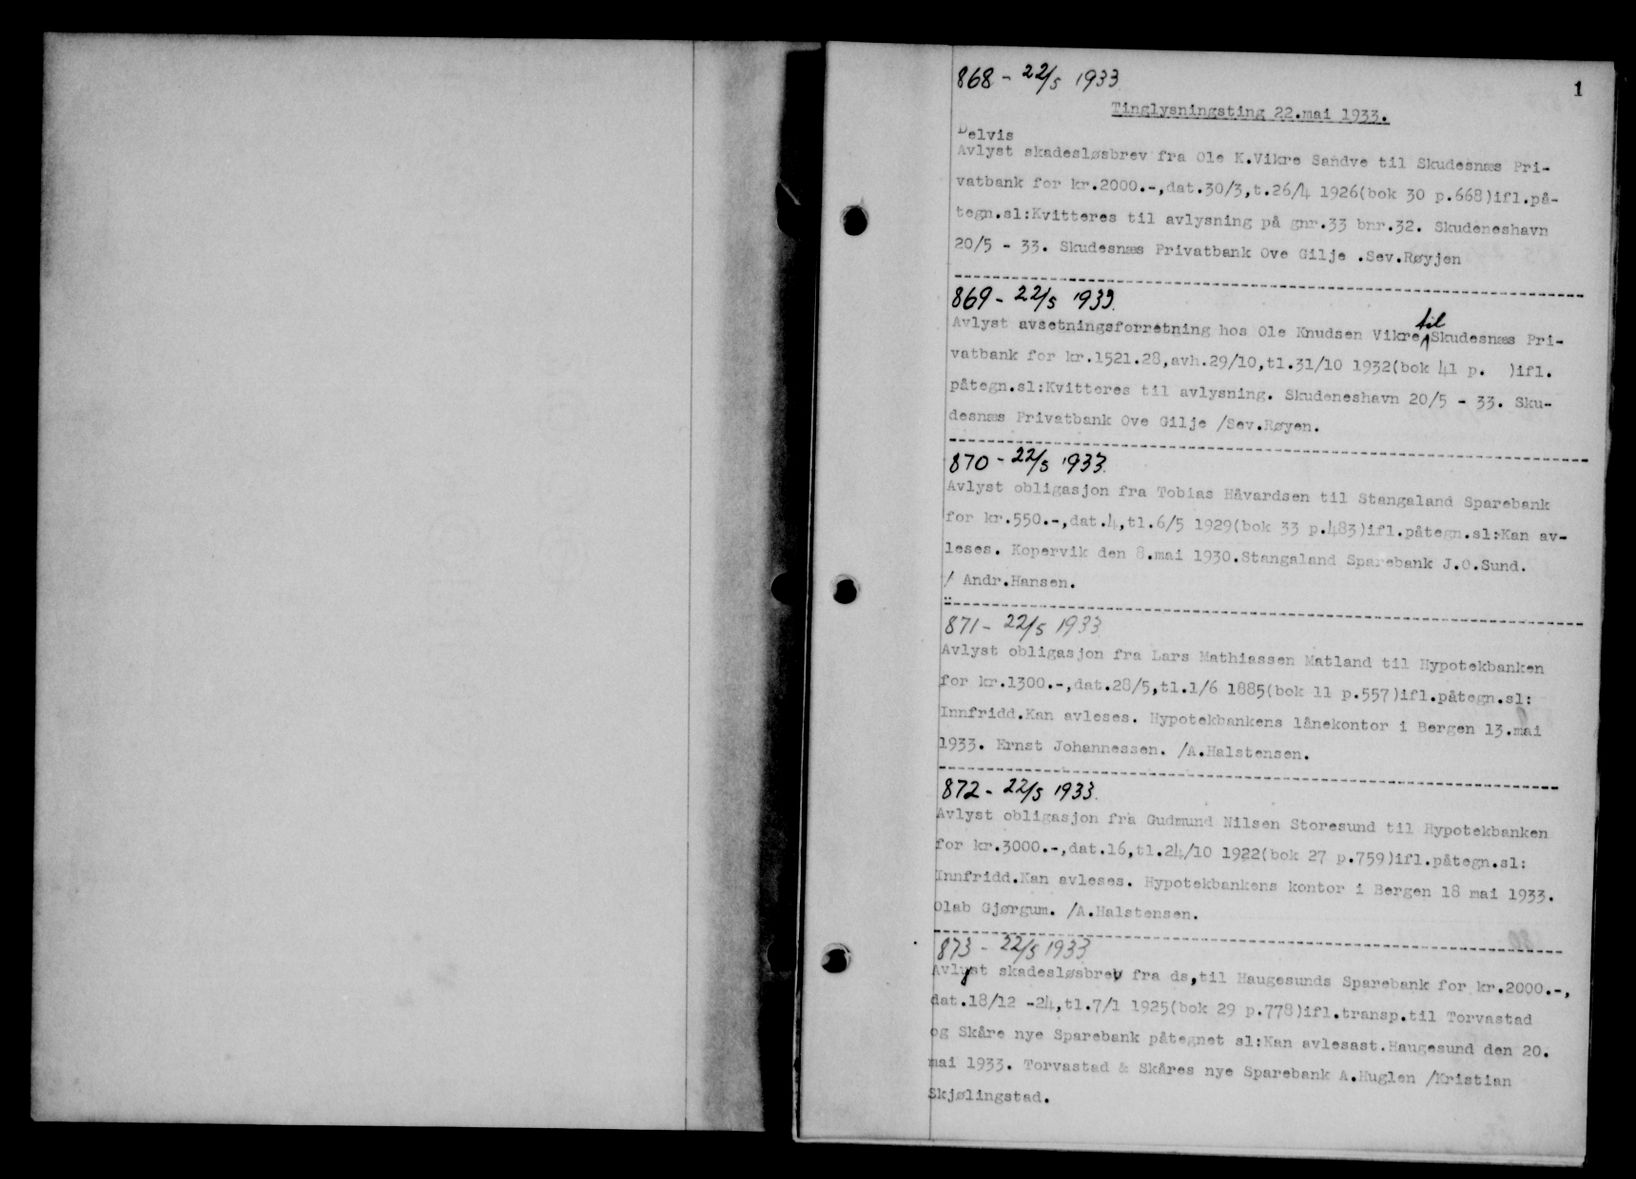 1
868 - 22/5 1933.
Tinglysningsting 22.mai 1933.
Delvis
Avlyst skadesløsbrev fra Ole K.Vikre Sandve til Skudesnæs Pri-
vatbank for kr.2000.-,dat.30/3,t.26/4 1926(bok 30 p.668)ifl.på-
tegn.sl:Kvitteres til avlysning på gnr.33 bnr.32. Skudeneshavn
20/5 - 33. Skudesnæs Privatbank Ove Gilje .Sev.Røyjen
869 - 22/5 1933.
Avlyst avsetningsforretning hos Ole Knudsen Vikre til Skudesnæs Pri-
vatbank for kr.1521.28,avh.29/10,tl.31/10 1932(bok 41 p. )ifl.
påtegn.sl:Kvitteres til avlysning. Skudeneshavn 20/5 - 33. Sku-
desnæs Privatbank Ove Gilje /Sev.Røyen.
870 - 22/5 1933.
Avlyst obligasjon fra Tobias Håvardsen til Stangaland Sparebank
for kr.550.-,dat.4,tl.6/5 1929(bok 33 p.483)ifl.påtegn.sl:Kan av-
leses. Kopervik den 8.mai 1930.Stangaland Sparebank J.O.Sund.
/ Andr.Hansen.
871 - 22/5 1933
Avlyst obligasjon fra Lars Mathiassen Matland til Hypotekbanken
for kr.1300.-,dat.28/5,tl.1/6 1885(bok 11 p.557)ifl.påtegn.sl:
Innfridd.Kan avleses. Hypotekbankens lånekontor i Bergen 13.mai
1933. Ernst Johannessen. /A.Halstensen.
872 - 22/5 1933.
Avlyst obligasjon fra Gudmund Nilsen Storesund til Hypotekbanken
for kr.3000.-,dat.16,tl.24/10 1922(bok 27 p.759)ifl.påtegn.sl:
Innfridd.Kan avleses. Hypotekbankens kontor i Bergen 18 mai 1933.
Olab Gjørgum. /A.Halstensen.
873 - 22/5 1933
Avlyst skadesløsbrev fra ds,til Haugesunds Sparebank for kr.2000.-,
dat.18/12 -24,tl.7/1 1925(bok 29 p.778)ifl.transp.til Torvastad
og Skåre nye Sparebank påtegnet sl:Kan avlesast.Haugesund den 20.
mai 1933. Torvastad & Skåres nye Sparebank A.Huglen /Kristian
Skjølingstad.